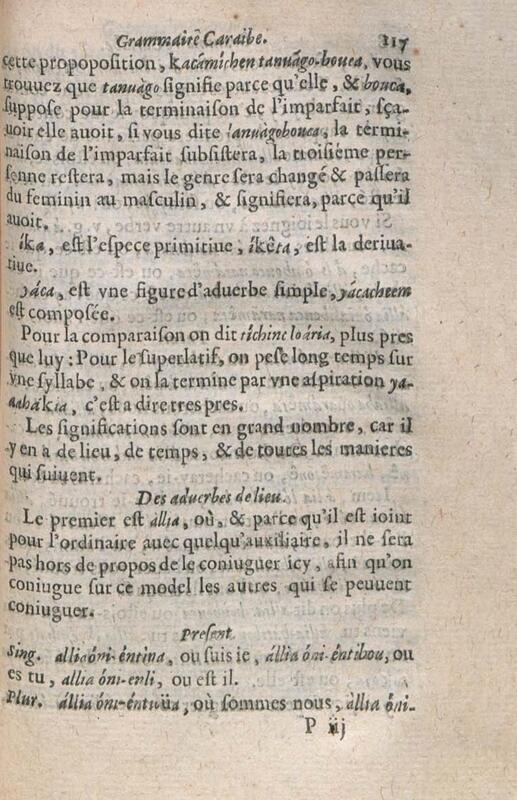 Grammaire Caraibe. 117
cette propoposition, kacámichen tanuágo-bouca, vous
trouuez que tanuágo signifie parce qu'elle, & bouca,
suppose pour la terminaison de l'imparfait, sça-
uoir elle auoit, si vous dite lanuágobouca, la termi-
naison de l'imparfait subsistera, la troisiéme per-
sonne restera, mais le genre sera changé & passera
du feminin au masculin, & signifiera, parce qu'il
auoit.
íka, est l'espece primitiue, íkêta, est la deriua-
tiue.
yáca, est vne figure d'aduerbe simple, yácacheem
est composée.
Pour la comparaison on dit tichine loária, plus pres
que luy : Pour le superlatif, on pese long temps sur
vne syllabe, & on la termine par vne aspiration ya-
aahákia, c'est a dire tres pres.
Les significations sont en grand nombre, car il
y en à de lieu, de temps, & de toutes les manieres
qui suiuent.
Des aduerbes de lieu.
Le premier est állia, où, & parce qu'il est ioint
pour l'ordinaire auec quelqu'auxiliaire, il ne sera
pas hors de propos de le coniuguer icy, afin qu'on
coniugue sur ce model les autres qui se peuuent
coniuguer.
Present.
Sing. alliaóni-éntina, ou suis ie, állia óni-éntibou, ou
es tu, allia óni-enli, ou est il.
Plur. állia óni-éntiuüa, où sommes nous, állia óni-
P iij